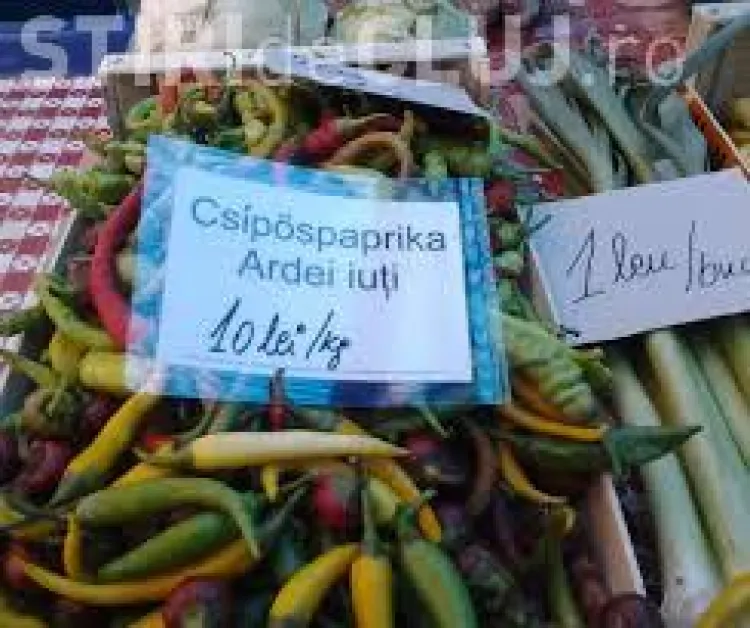 STIRIdeCLUJ.ro
Csípőspaprika
Ardei iuți
10 lei/kg
1 leu/buc